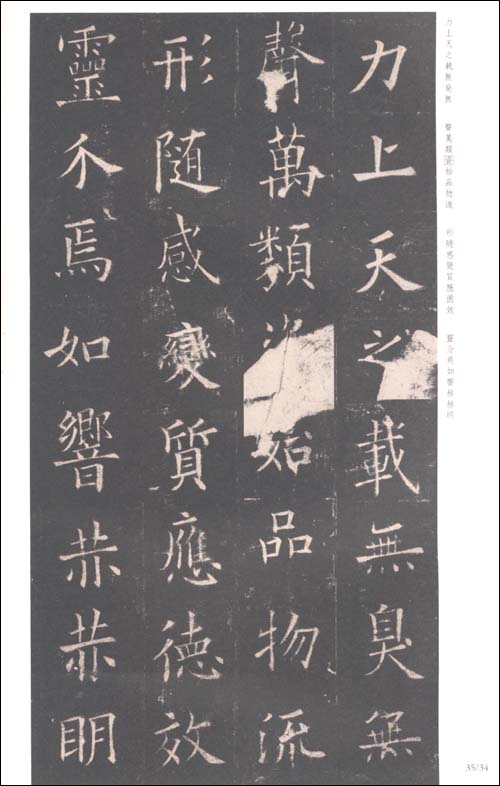 力上天之載無臭無 聲萬類資始品物流 形隨感變質應德效 靈介焉如響赫赫明
力上天之載無臭無
聲萬類始品物流
形隨感變質應德效
靈介焉如響赫赫明
35/34